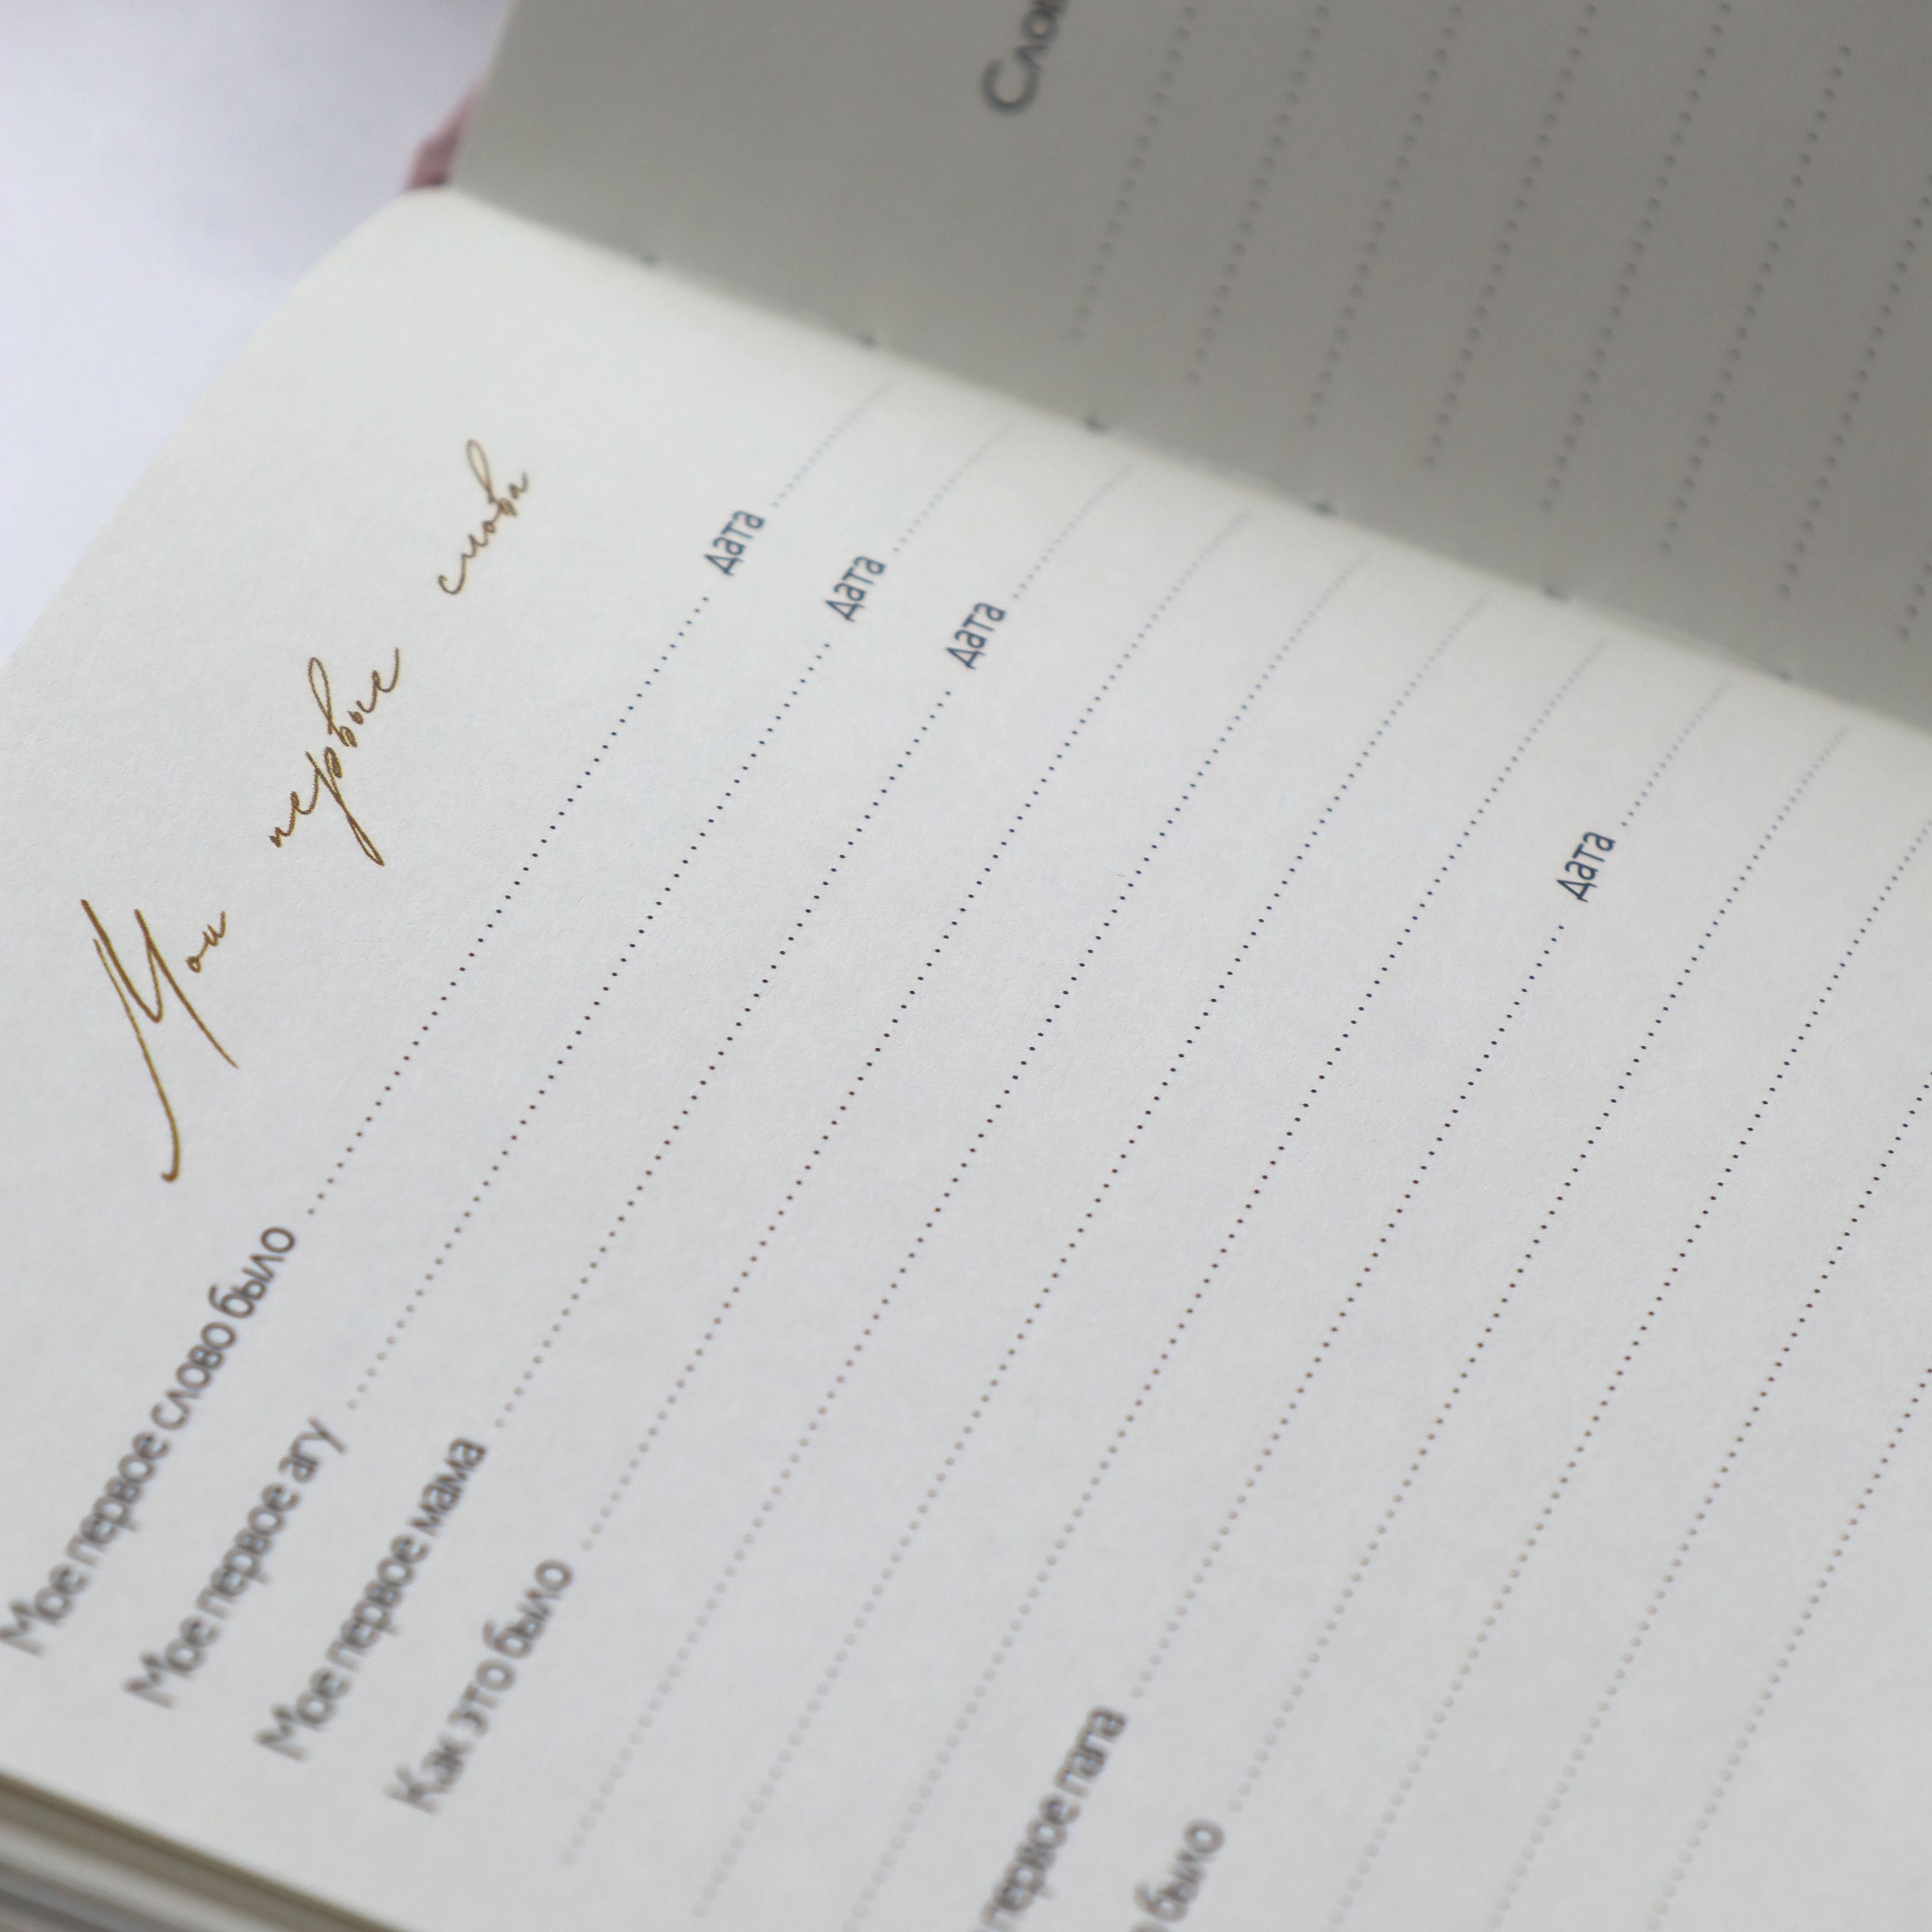 Мои первые слова
Мое первое слово было ........ Дата ........
Мое первое агу ........ Дата ........
Мое первое мама ........ Дата ........
Как это было ........
первое папа ........ Дата ........
было ........